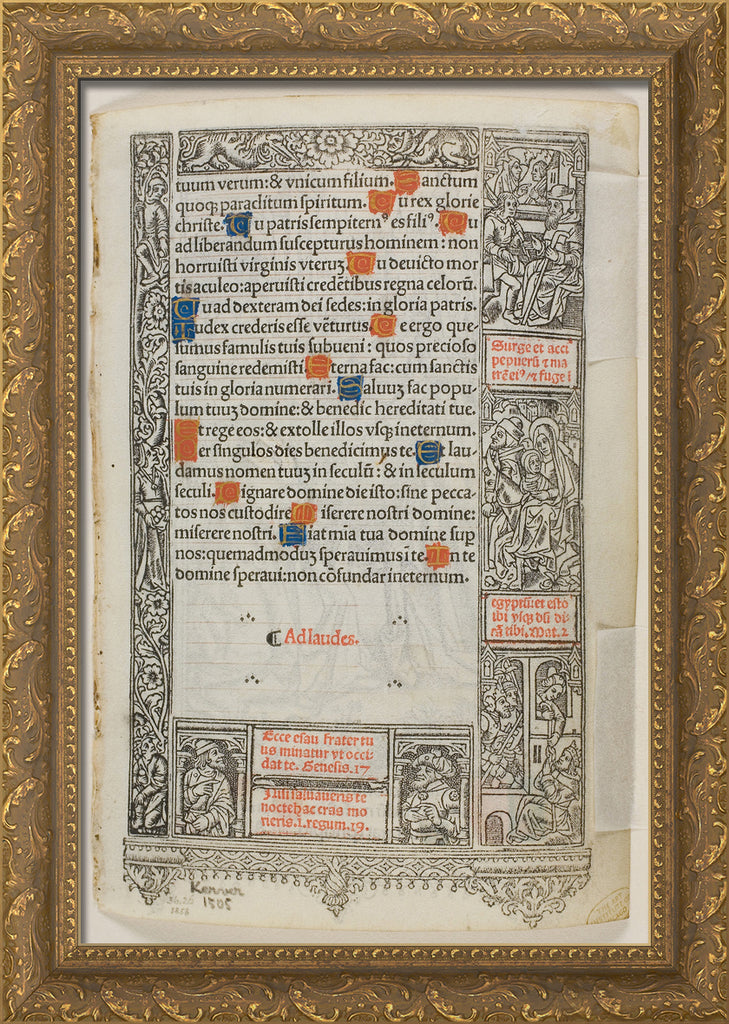 tuum verum: & vnicum filium. Sanctum
quoqꝫ paraclitum spiritum. Tu rex glorie
christe. Tu patris sempitern⁹ es fili⁹. Tu
ad liberandum suscepturus hominem: non
horruisti virginis vteruꝫ. Tu deuicto mor
tis aculeo: aperuisti credẽtibus regna celorũ.
Tu ad dexteram dei sedes: in gloria patris.
Iudex crederis esse vẽturus. Te ergo que
sumus famulis tuis subueni: quos precioso
sanguine redemisti. Eterna fac: cum sanctis
tuis in gloria numerari. Saluuꝫ fac popu
lum tuuꝫ domine: & benedic hereditati tue.
Et rege eos: & extolle illos vsqꝫ ineternum.
Per singulos dies benedicimus te. Et lau
damus nomen tuuꝫ in seculũ: & in seculum
seculi. Dignare domine die isto: sine pecca
tos nos custodire. Miserere nostri domine:
miserere nostri. Fiat mĩa tua domine sup
nos: quemadmoduꝫ sperauimus ĩ te. In te
domine speraui: non cõfundar ineternum.
Ad laudes.
Surge et acci
pe pueꝝ ⁊ ma
trẽ ei⁹ ⁊ fuge ĩ
egyptũ: et esto
ibi vsqꝫ dũ di
cã tibi. Mat. 2
Ecce esau frater tu
us minatur vt occi
dat te. Genesis. 17
Nisi saluaueris te
nocte hac cras mo
rieris. 1. regum. 19.
Kerver
1505